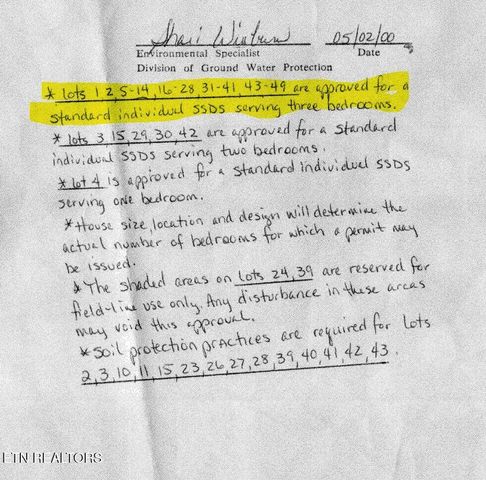 Shari Winburn 05/02/00
Environmental Specialist Date
Division of Ground Water Protection
* Lots 1 2,5-14,16-28,31-41,43-49 are approved for a
standard individual SSDS serving three bedrooms.
* lots 3 15,29,30,42 are approved for a standard
individual SSDS serving two bedrooms.
* lot 4 is approved for a standard individual SSDS
serving one bedroom.
* House size, location and design will determine the
actual number of bedrooms for which a permit may
be issued.
* The shaded areas on lots 24,39 are reserved for
field-line use only. Any disturbance in these areas
may void this approval.
* Soil protection practices are required for lots
2,3,10,11,15,23,26,27,28,39,40,41,42,43.
ETN REALTORS